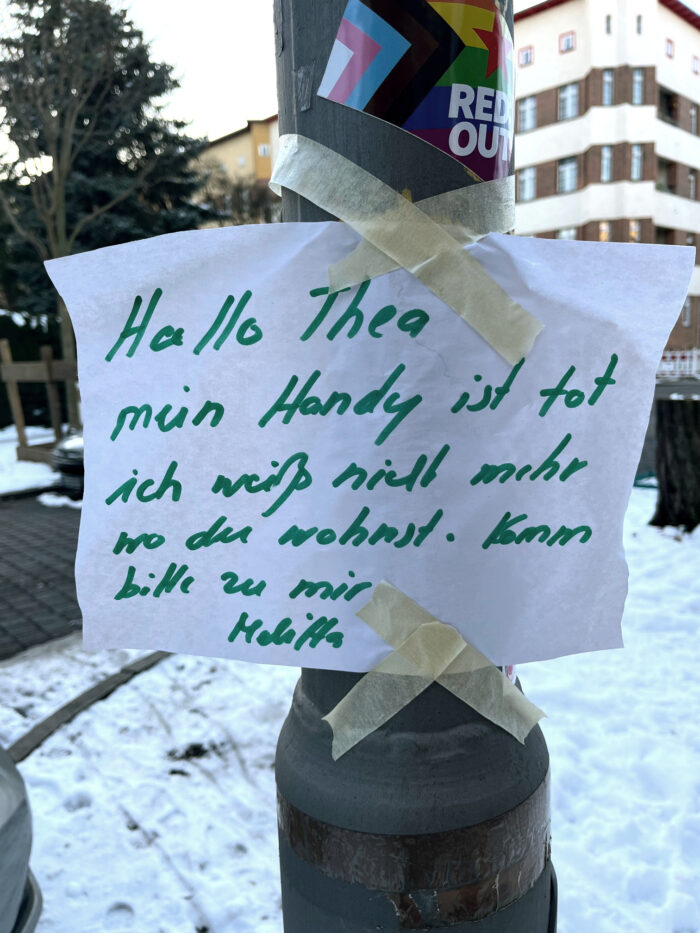 RED
OUT
Hallo Thea
mein Handy ist tot
ich weiß nicht mehr
wo du wohnst. Komm
bitte zu mir
Melitta